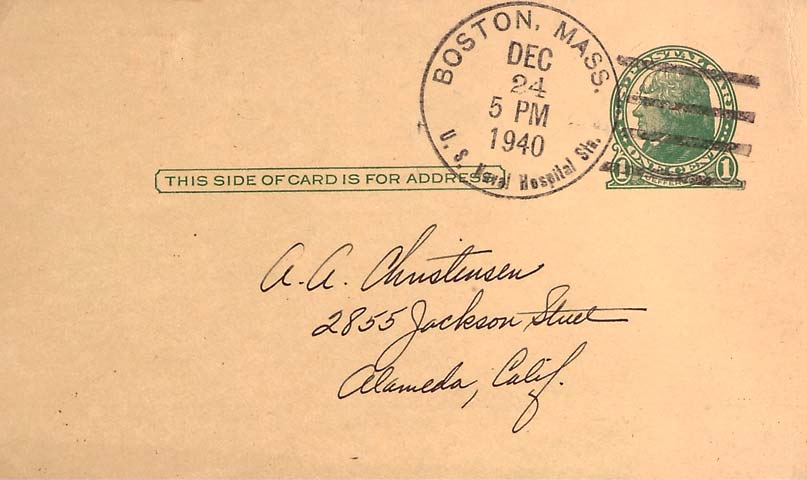 BOSTON, MASS.
DEC
24
5 PM
1940
U. S. Naval Hospital Sta.
POSTAL CARD
ONE CENT
1 JEFFERSON 1
THIS SIDE OF CARD IS FOR ADDRESS
A. A. Christensen
2855 Jackson Street
Alameda, Calif.